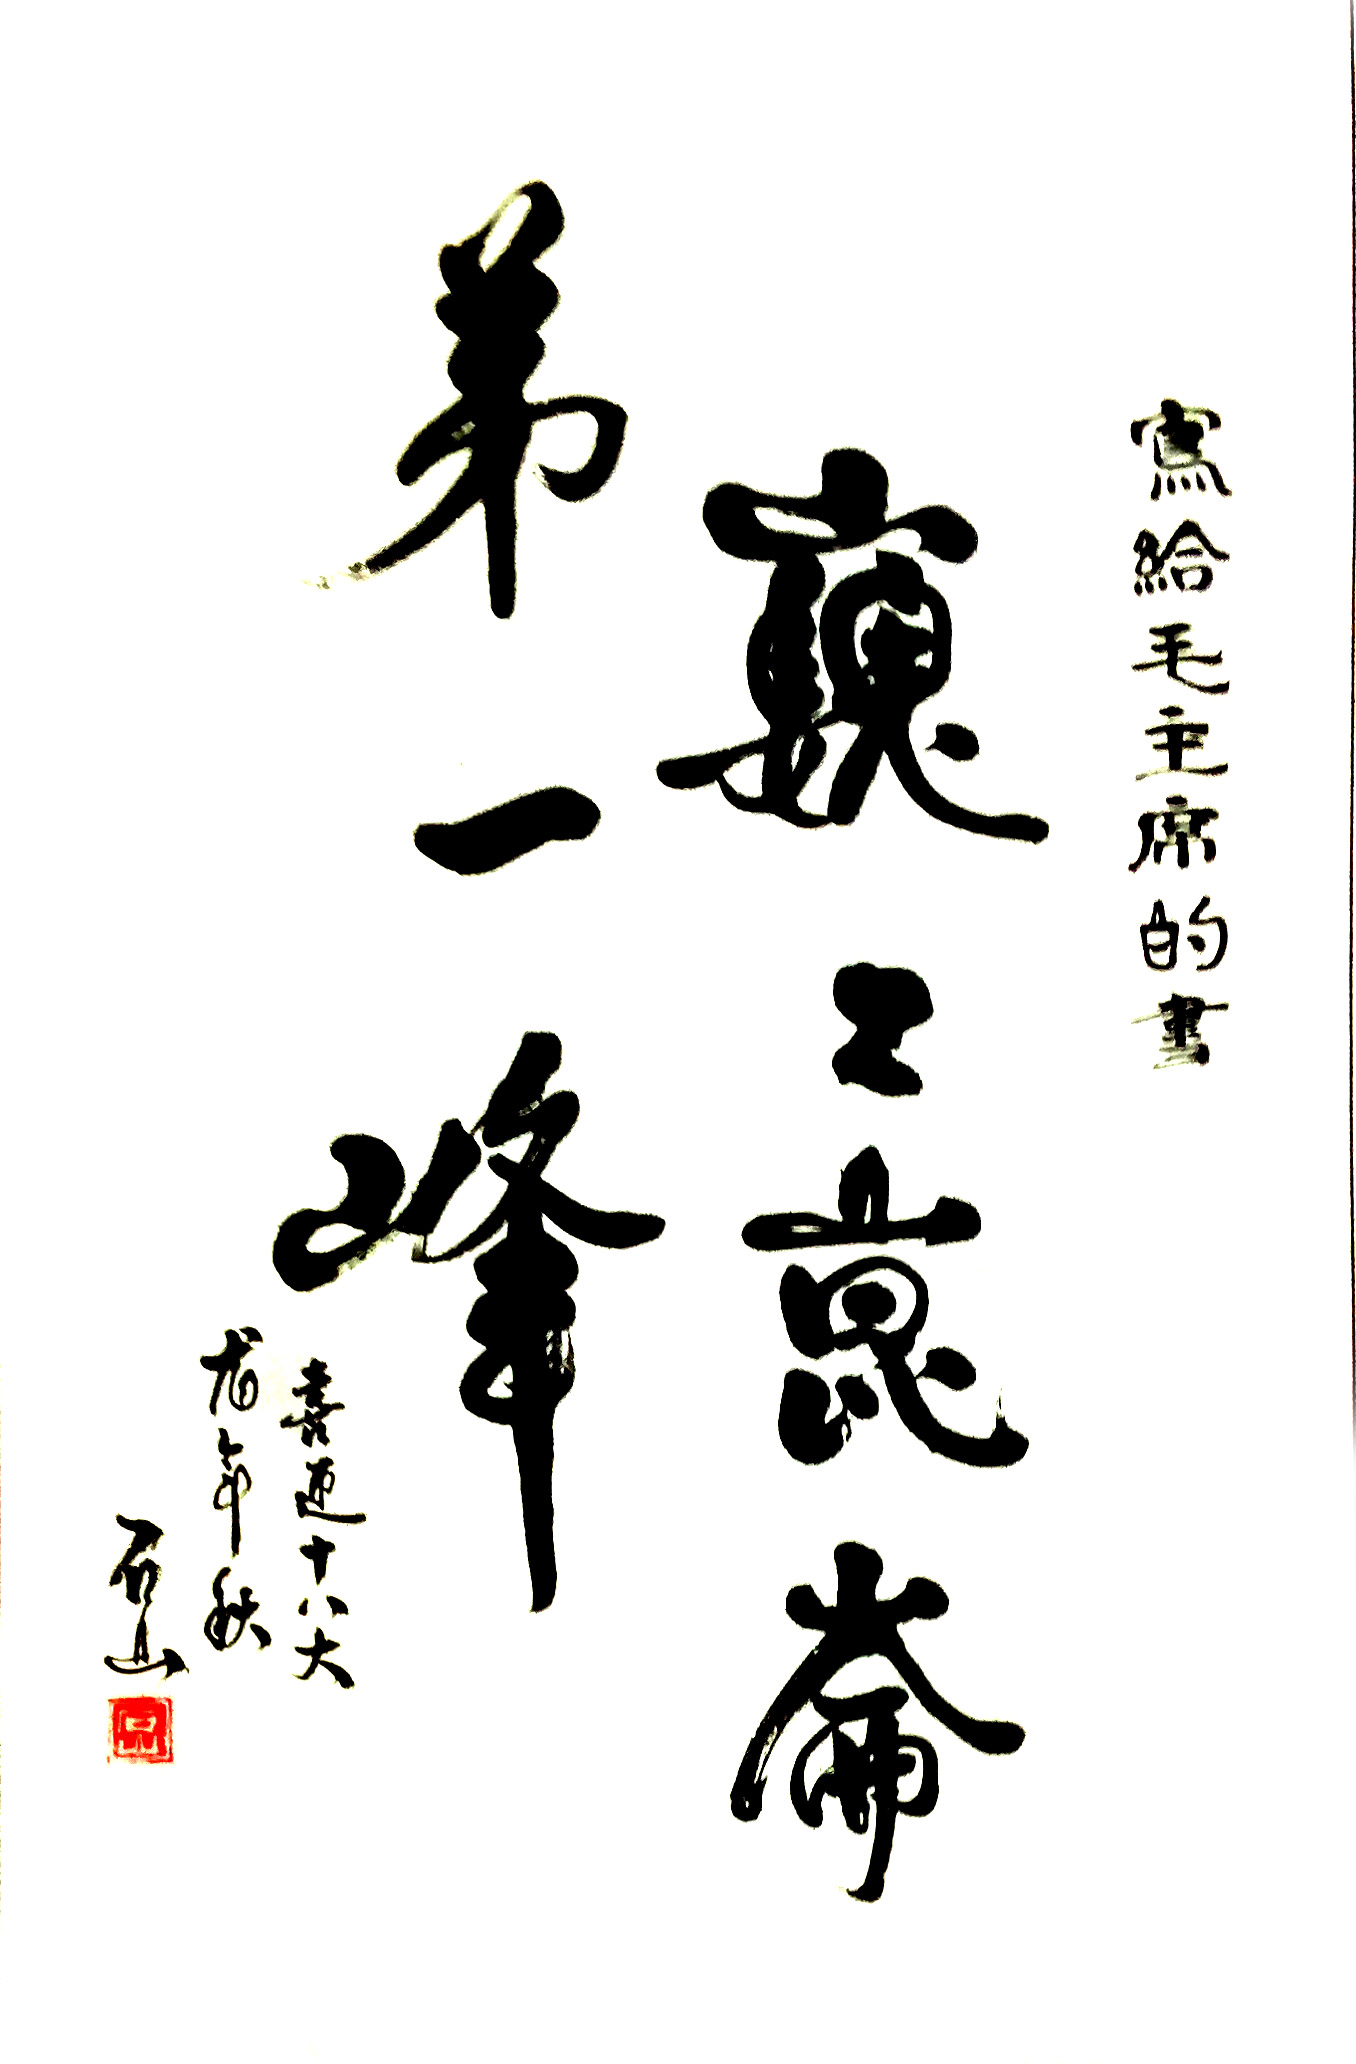 寫給毛主席的書
巍〻崑崙
第一峰
喜迎十八大
龍年秋
石山